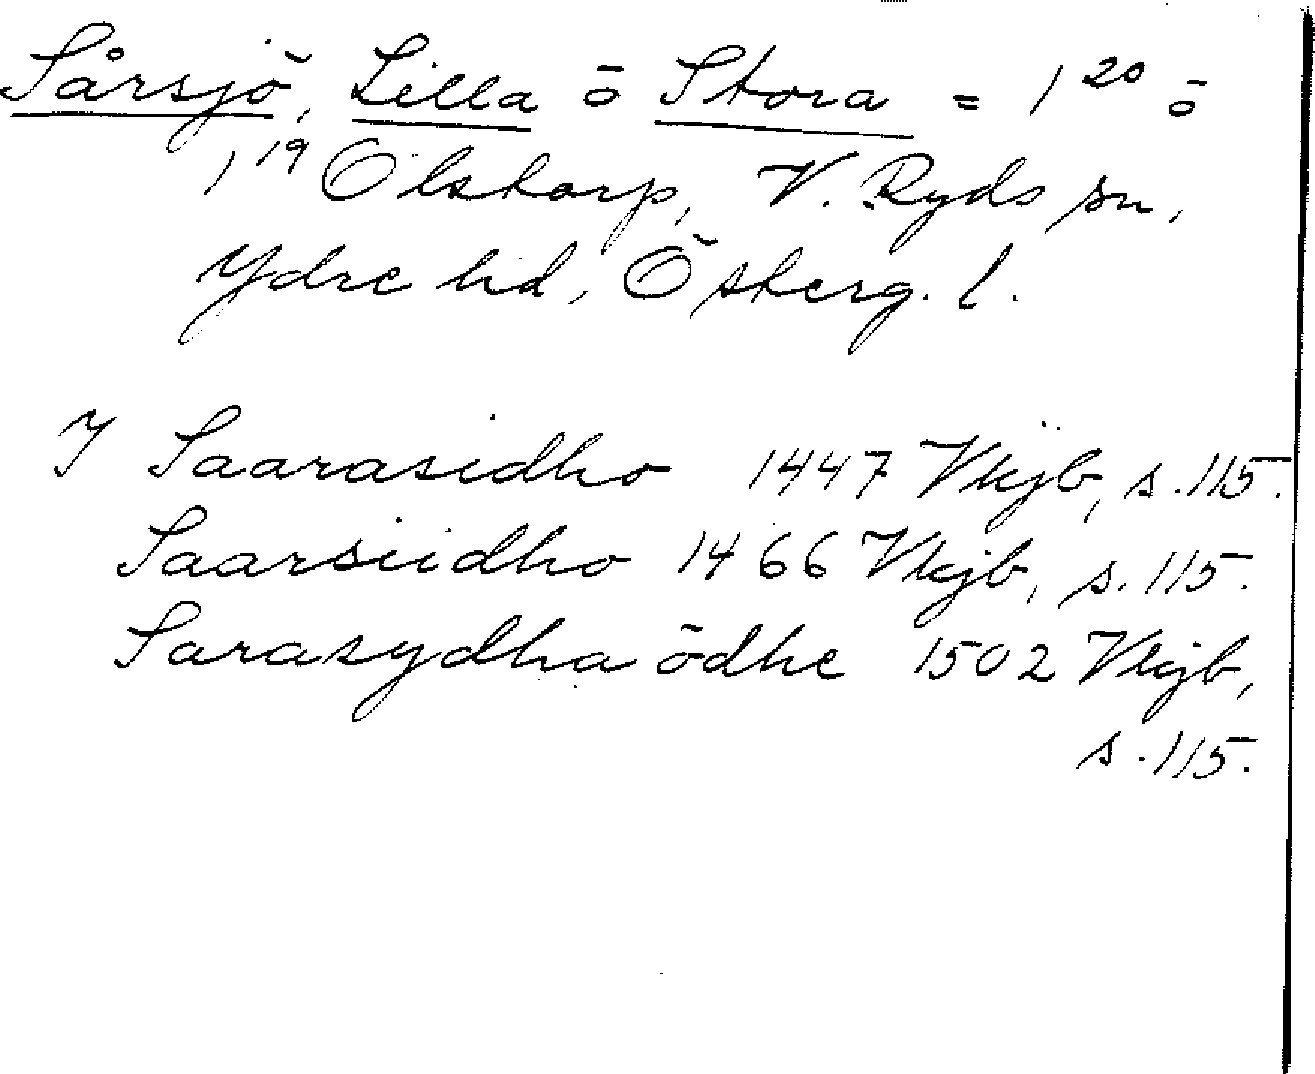 Sårsjö, Lilla o Stora = 1²⁰ o
1¹⁹ Olstorp, V. Ryds sn,
Ydre hd, Österg. l.
I Saarasidho 1447 Vkjb, s. 115.
Saarsiidho 1466 Vkjb, s. 115.
Sarasydha ödhe 1502 Vkjb,
s. 115.